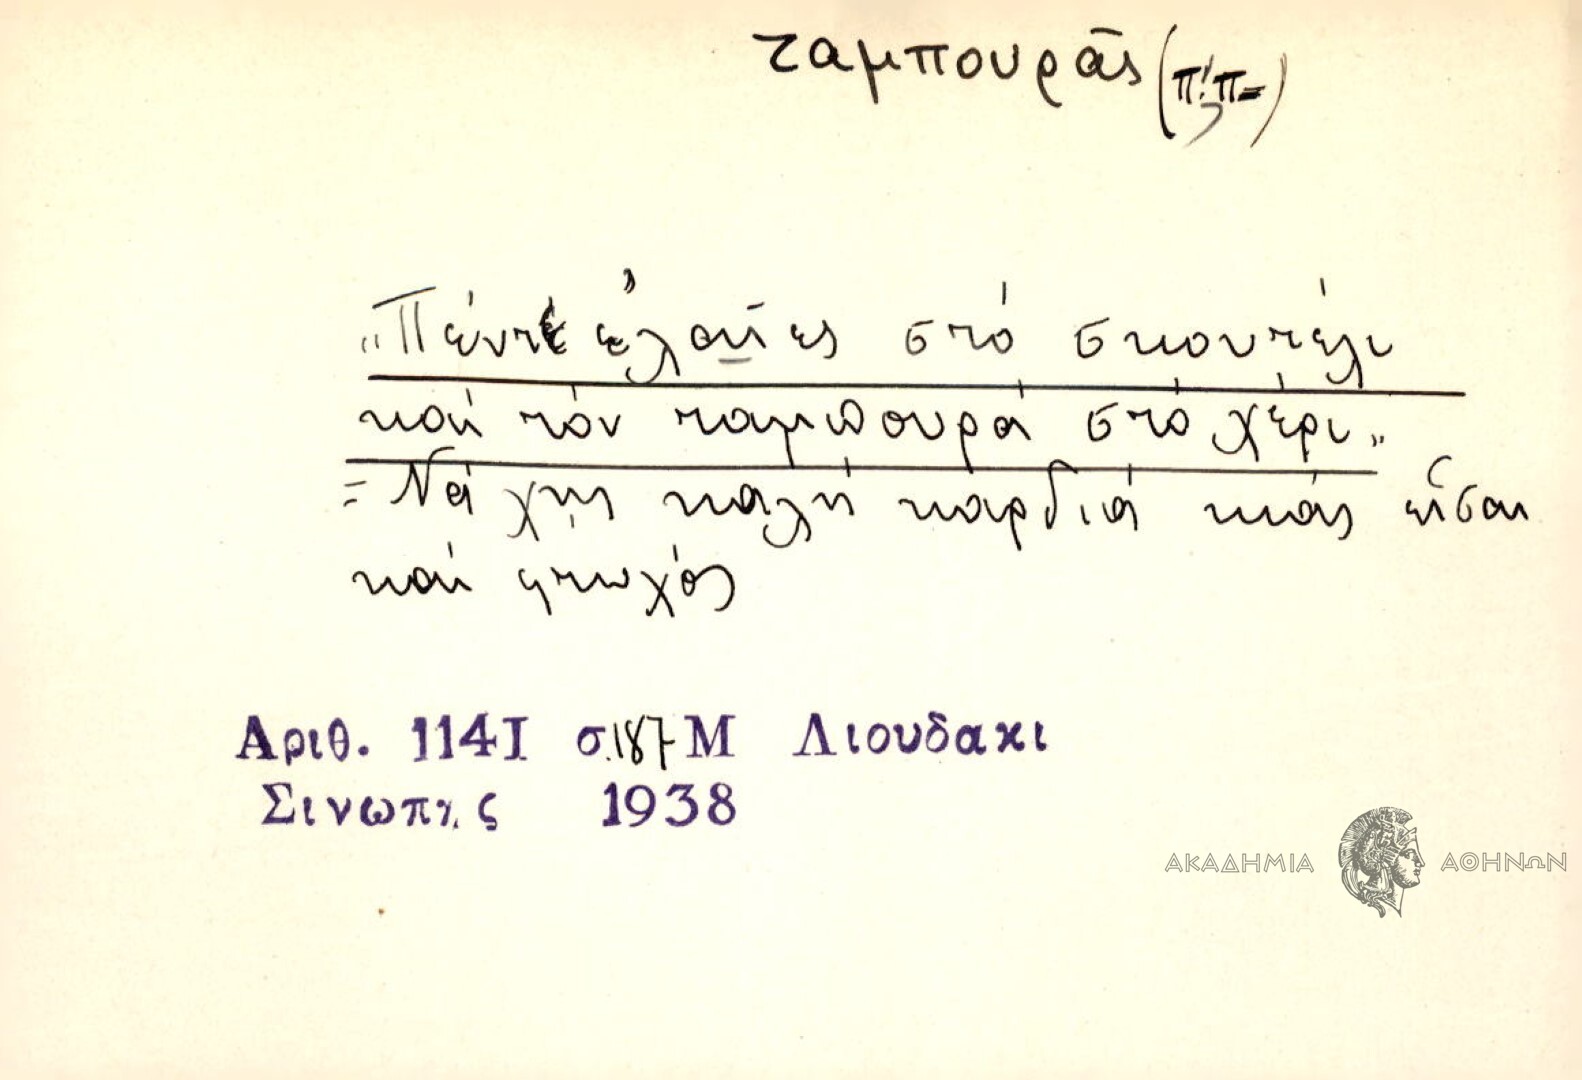 ταμπουρᾶς
„Πέντε ἐλαῖες στό σκουτέλι
καί τόν ταμπουρά στό χέρι„
= Νά χῃς καλή καρδιά κιάς εἶσαι
καί φτωχός
Αριθ. 1141 σ.187 Μ Λιουδακι
Σινωπης 1938
ΑΚΑΔΗΜΙΑ ΑΘΗΝΩΝ